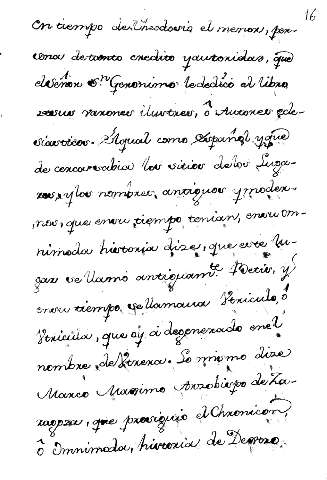 16
en tiempo de Theodosio el menor, per-
sona de tanto credito y autoridad, que
el señor Sn. Geronimo le dedicó el libro
de sus varones ilustres, ô Autores ecle-
siasticos. El qual como Español y que
de cerca sabia los sitios de los Luga-
res, y los nombres antiguos y moder-
nos, que en su tiempo tenian, en su om-
nimoda historia dize, que este lu-
gar se llamó antiguamte. Betis, y
en su tiempo se llamaua Vtriculo, ô
Vtricula, que oy á degenerado en el
nombre de Vtrera. Lo mismo dize
Marco Maximo Arzobispo de Za-
ragoza, que prosiguió el Chronicon,
ô Omnimoda, historia de Dextro,